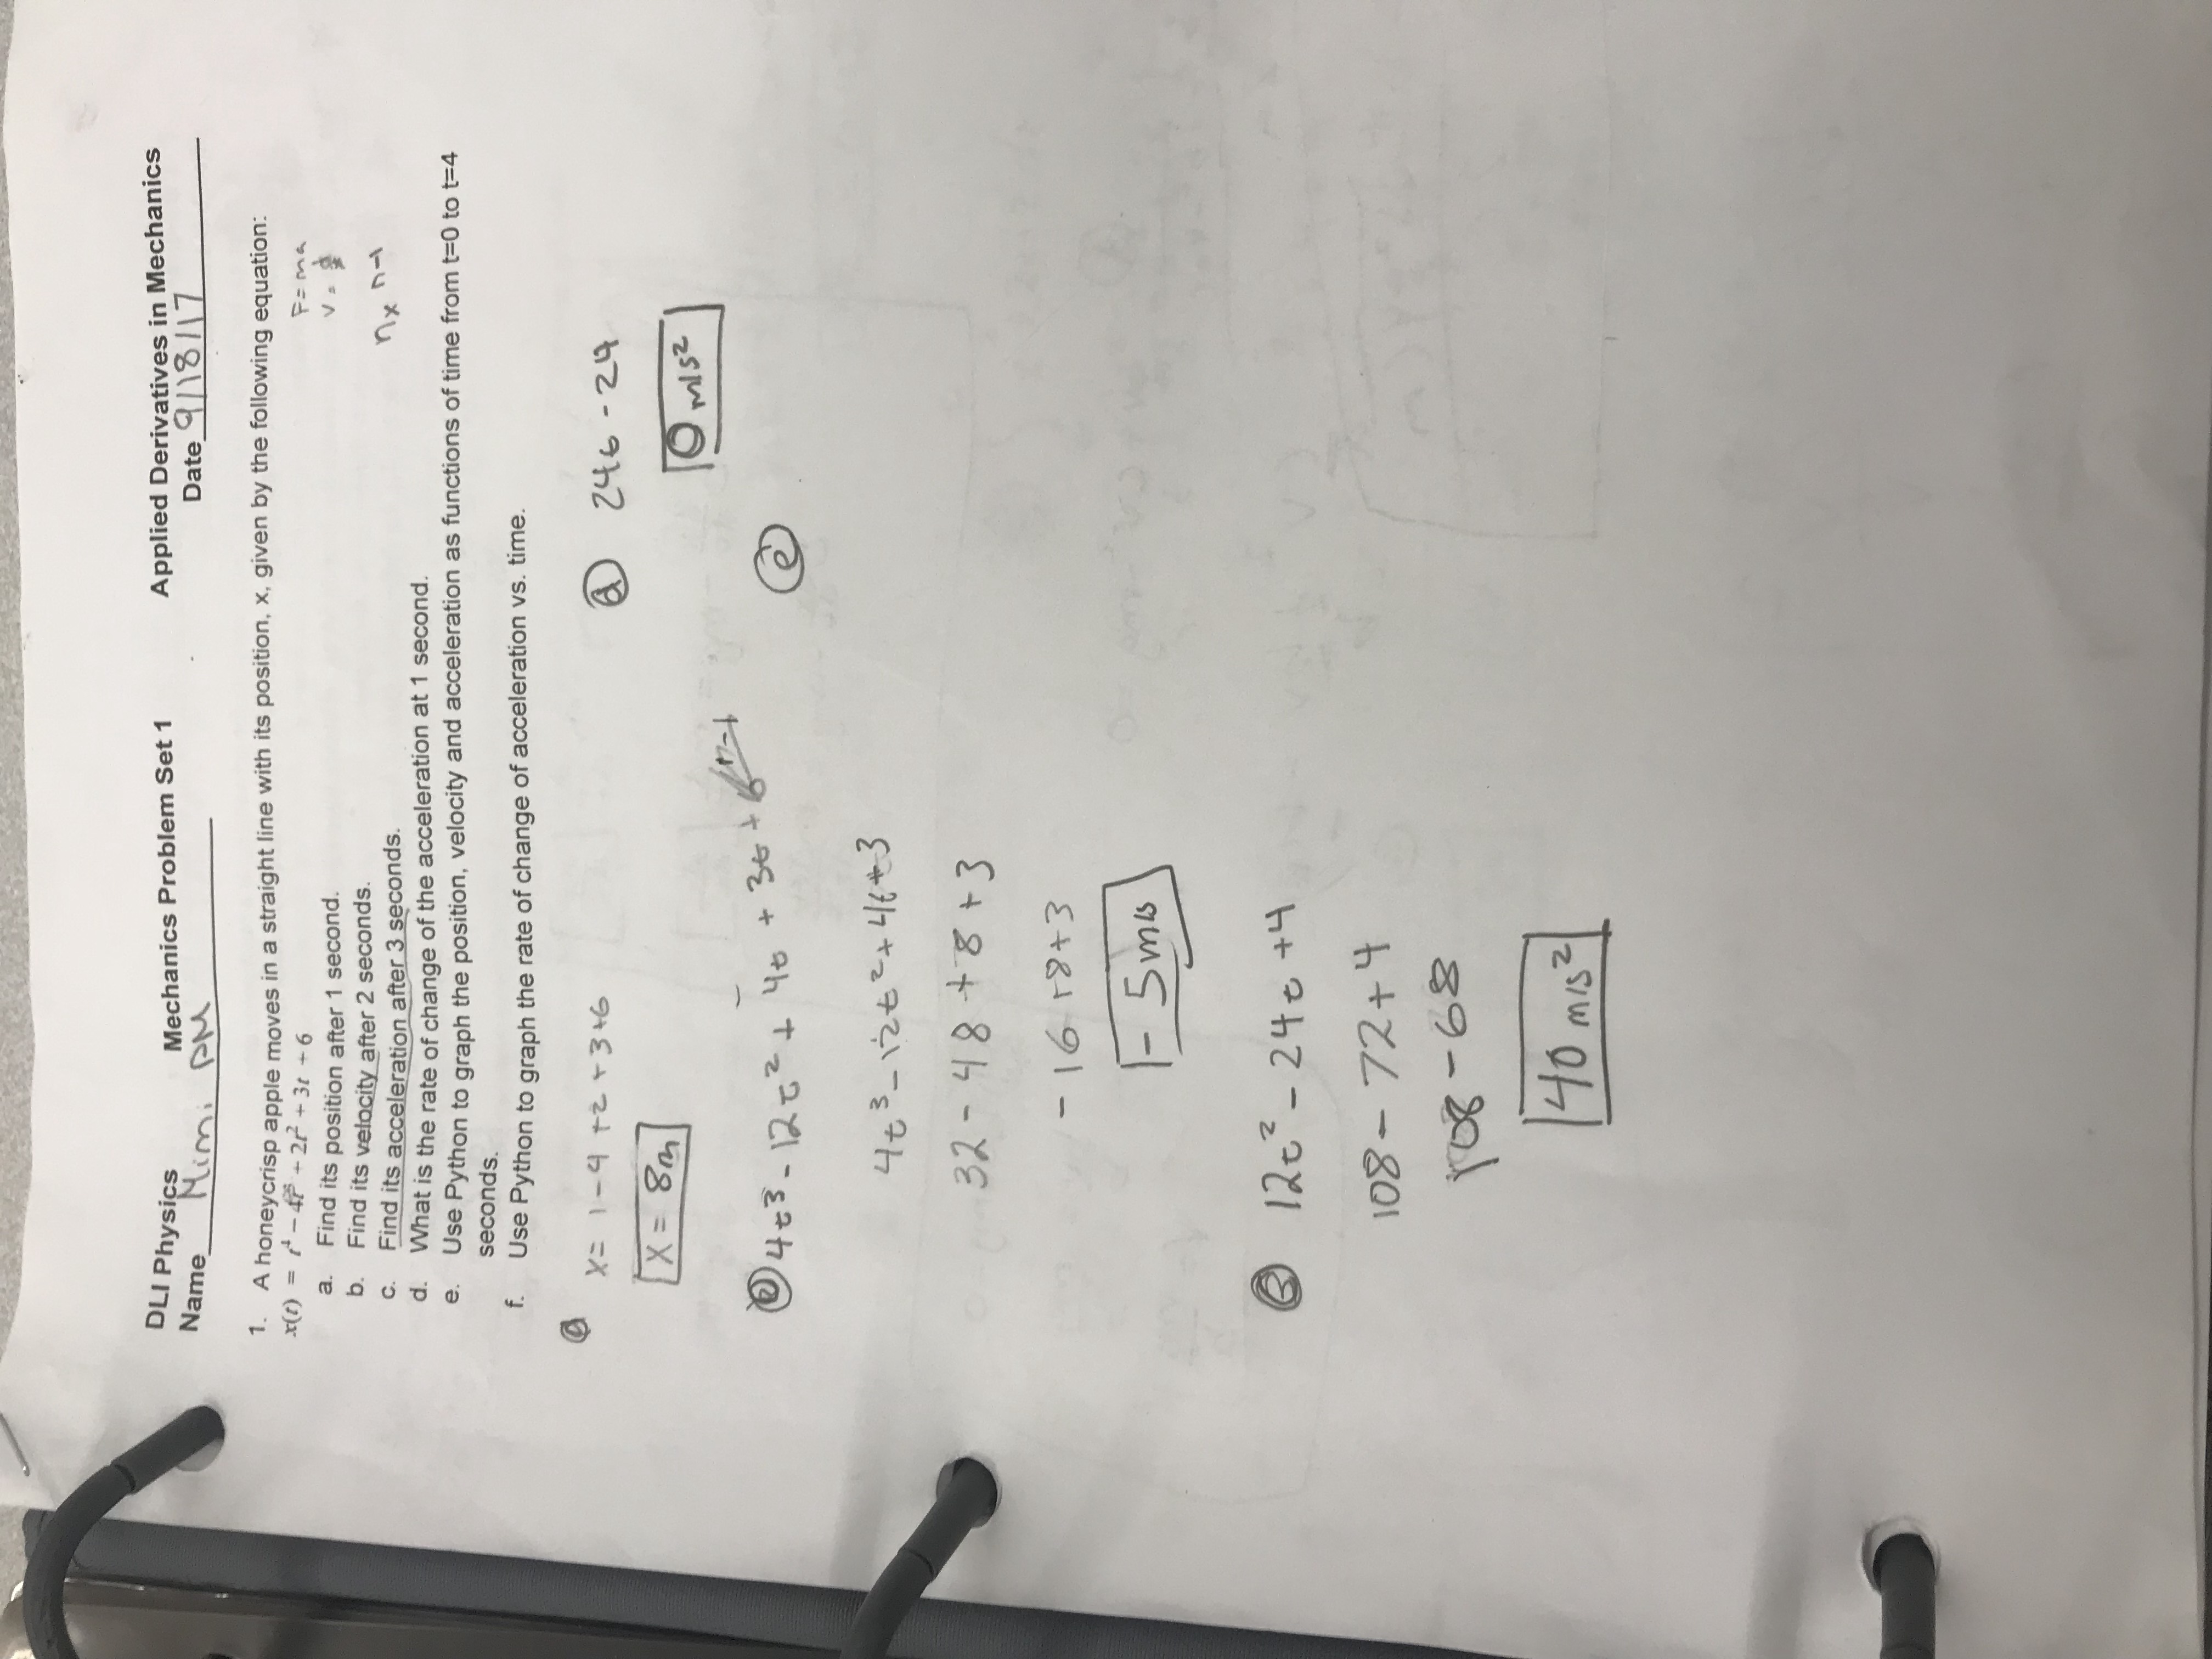 DLI Physics Mechanics Problem Set 1 Applied Derivatives in Mechanics
Name Mimi DM Date 9/18/17
1. A honeycrisp apple moves in a straight line with its position, x, given by the following equation:
x(t) = t⁴ - 4t³ + 2t² + 3t + 6
F = ma
a. Find its position after 1 second.
v =
b. Find its velocity after 2 seconds.
n x n-1
c. Find its acceleration after 3 seconds.
d. What is the rate of change of the acceleration at 1 second.
e. Use Python to graph the position, velocity and acceleration as functions of time from t=0 to t=4
seconds.
f. Use Python to graph the rate of change of acceleration vs. time.
a
x = 1 - 4 + 2 + 3 + 6
x = 8m
b 4t³ - 12t² + 4t + 3t + 6 n-1
4t³ - 12t² + 4t + 3
32 - 48 + 8 + 3
- 16 + 8 + 3
- 5 m/s
c 12t² - 24t + 4
108 - 72 + 4
108 - 68
40 m/s²
d 24t - 24
0 m/s²
e